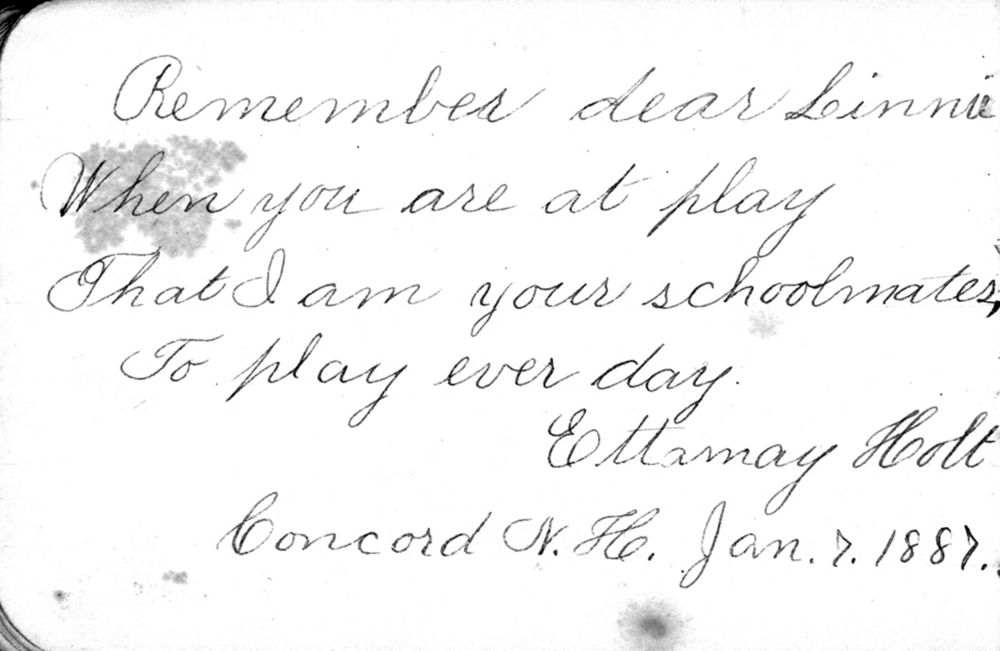 Remember dear Linnie
When you are at play
That I am your schoolmates,
To play ever day.
Ettamay Holt
Concord N. H. Jan. 7. 1887.